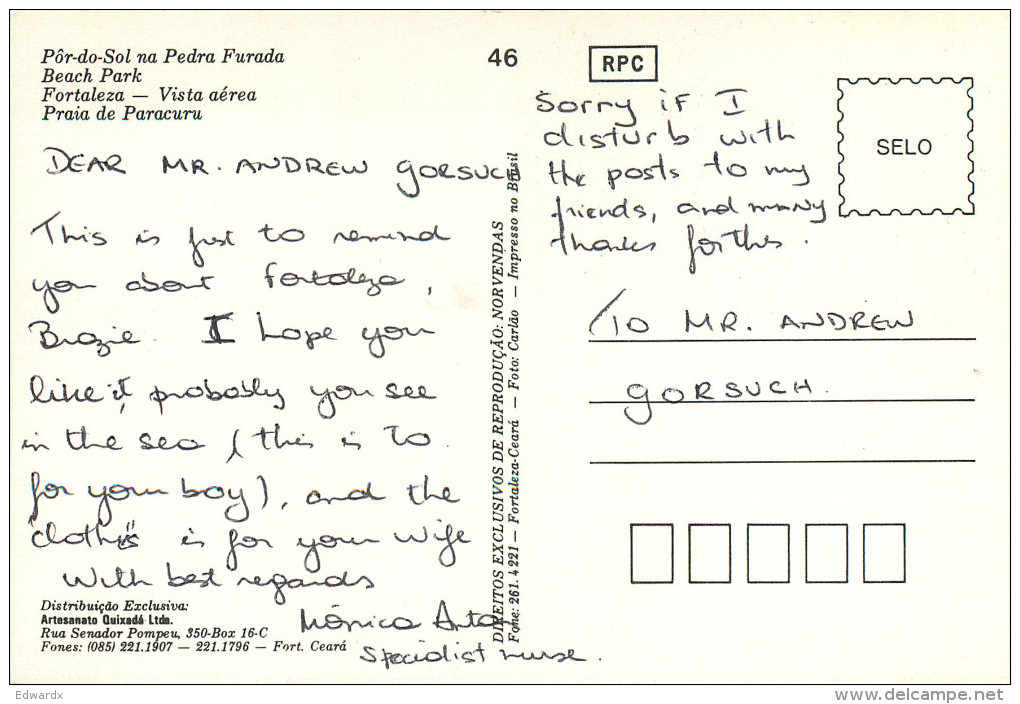 Pôr-do-Sol na Pedra Furada
Beach Park
Fortaleza — Vista aérea
Praia de Paracuru
46
RPC
SELO
DEAR MR. ANDREW GORSUCH
This is just to remind
you about Fortaleza,
Brazil. I hope you
like it, probably you see
in the sea (this is to
for your boy), and the
"clothis" is for your wife
With best regards
Mônica Anta
Specialist nurse.
Sorry if I
disturb with
the posts to my
friends, and many
thanks for this.
To MR. ANDREW
GORSUCH.
Distribuição Exclusiva:
Artesanato Quixadá Ltda.
Rua Senador Pompeu, 350-Box 16-C
Fones: (085) 221.1907 — 221.1796 — Fort. Ceará
DIREITOS EXCLUSIVOS DE REPRODUÇÃO: NORVENDAS
Fone: 261.4221 — Fortaleza-Ceará — Foto: Carlão — Impresso no Brasil
Edwardx
delcampe.net